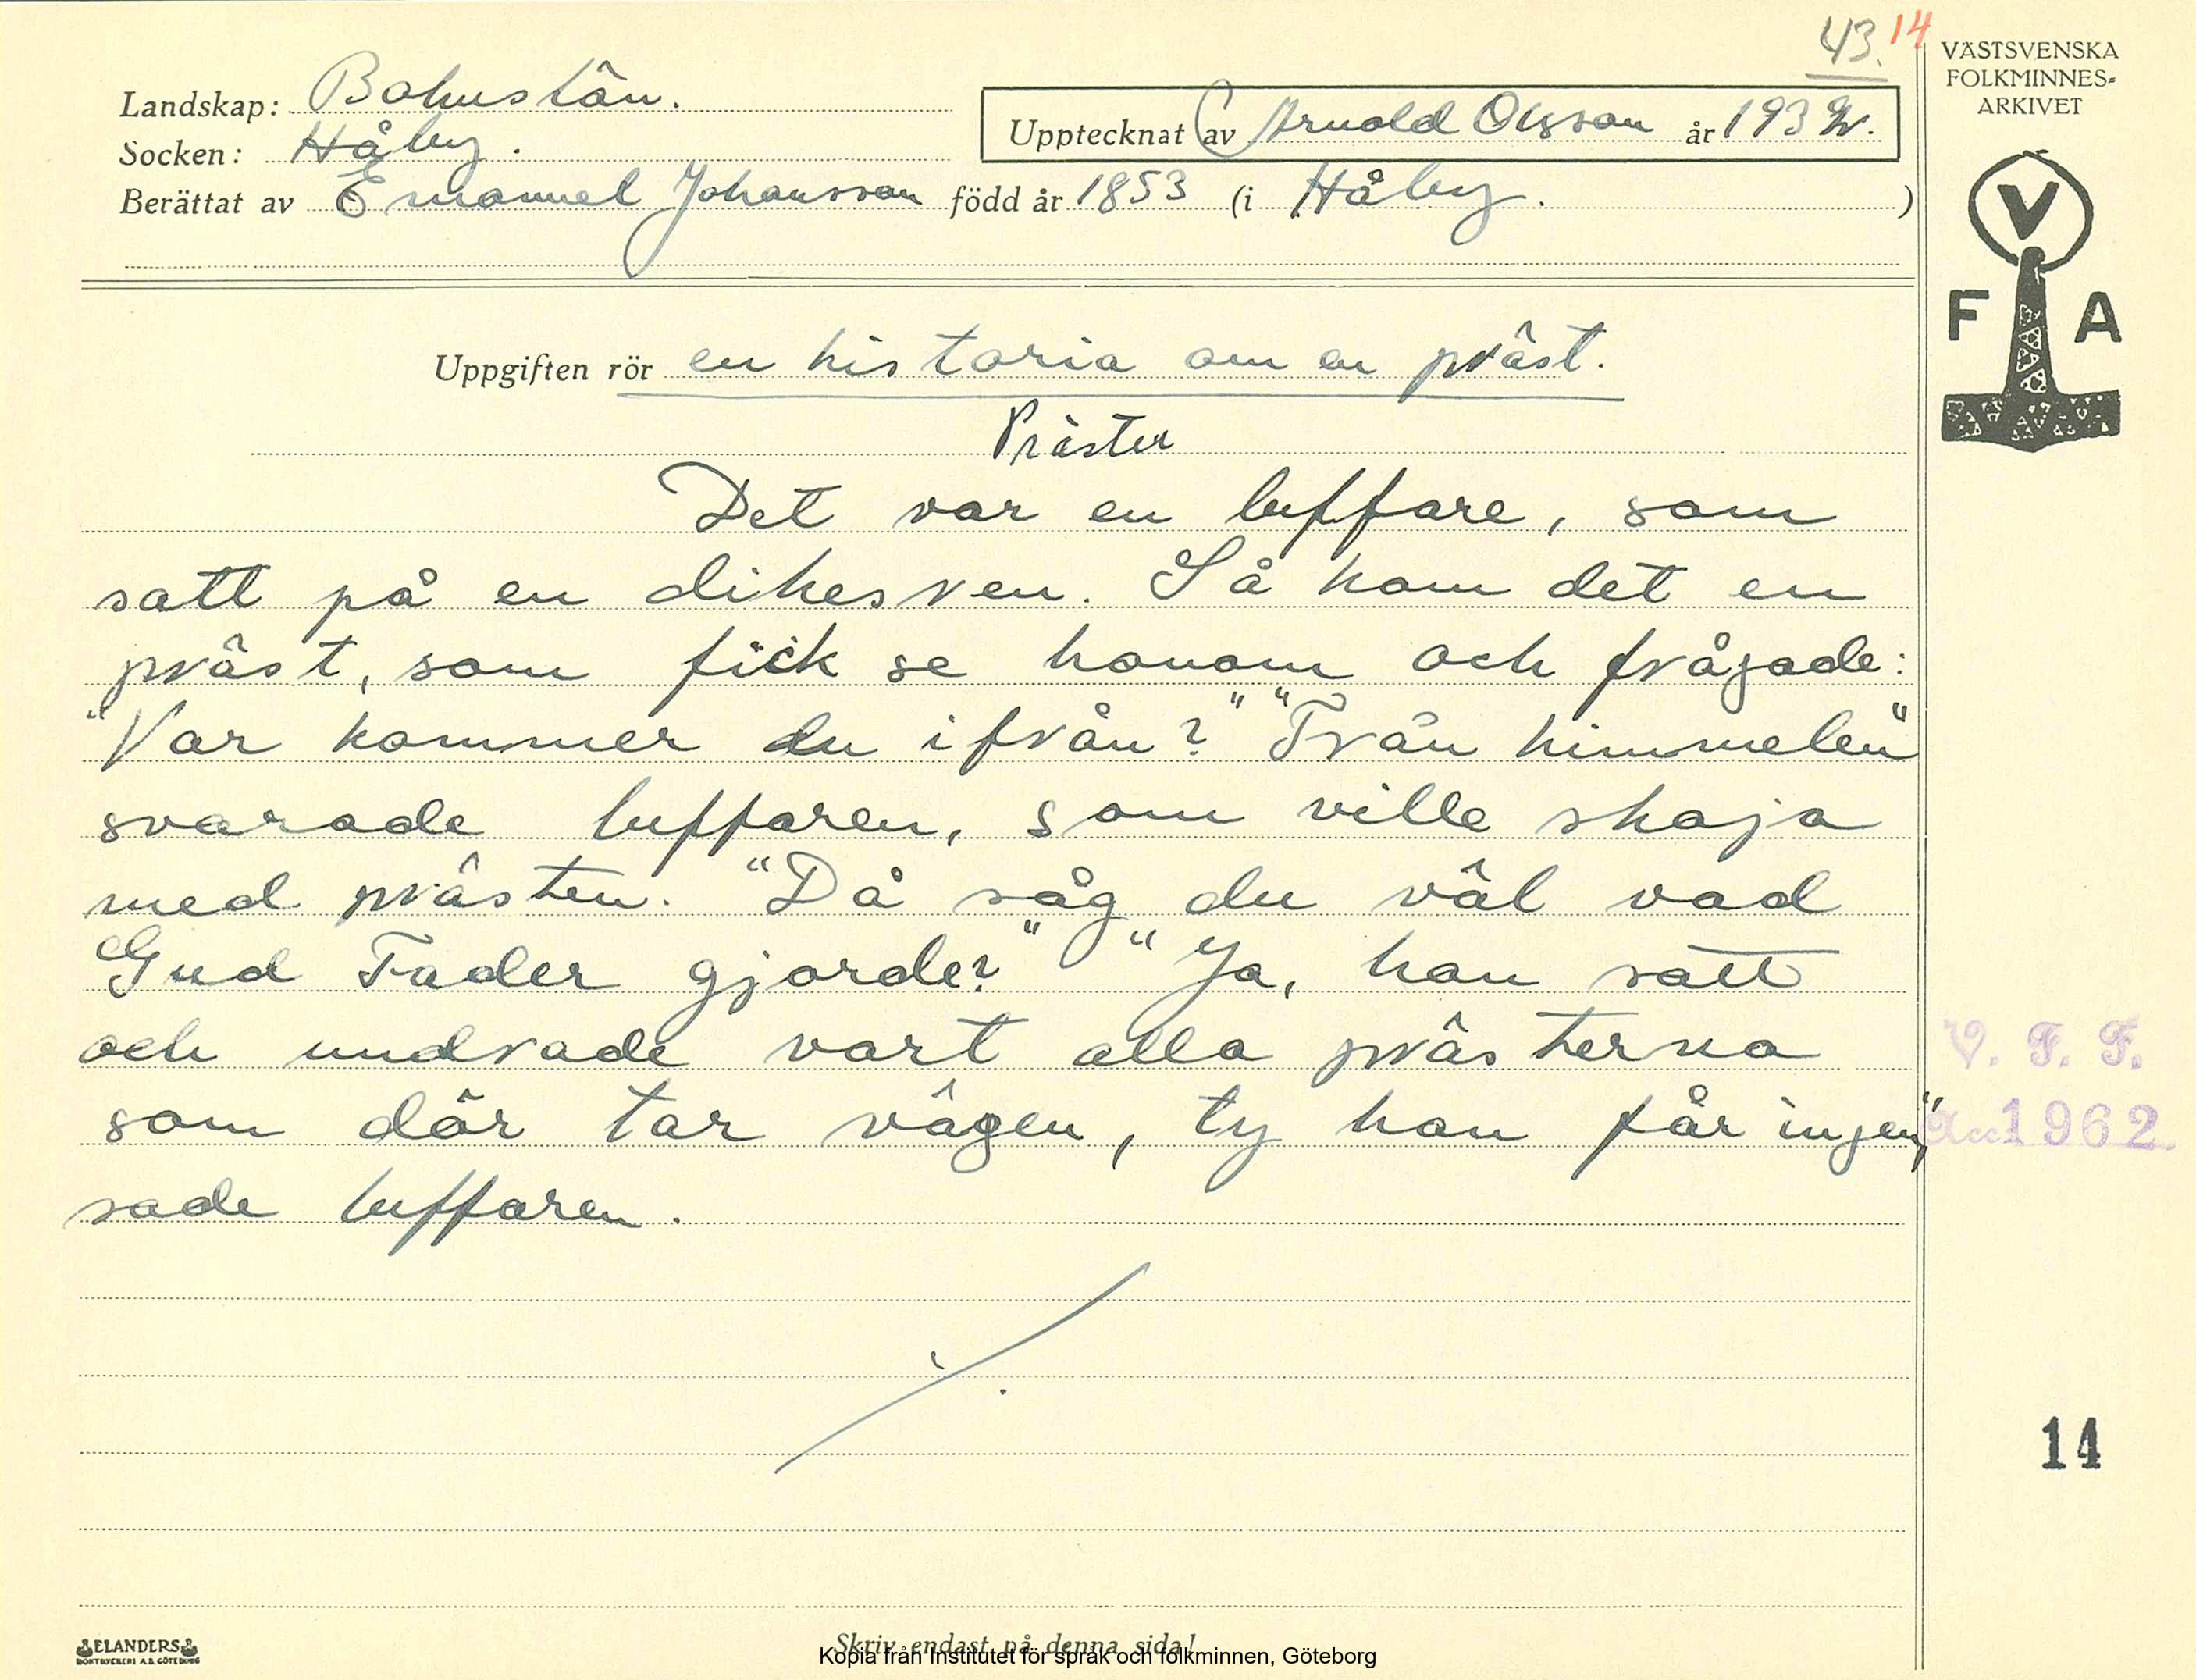 43. 14
VÄSTSVENSKA
FOLKMINNES-
ARKIVET
Landskap: Bohuslän.
Upptecknat av Arnold Olsson år 1932.
Socken: Håby.
Berättat av Emanuel Johansson född år 1853 (i Håby. )
V
F A
Uppgiften rör en historia om en präst.
Präster
Det var en luffare, som
satt på en dikesren. Så kom det en
präst, som fick se honom och frågade:
"Var kommer du ifrån?" "Från himmelen"
svarade luffaren, som ville skoja
med prästen. "Då såg du väl vad
Gud Fader gjorde?" "Ja, han satt
och undrade vart alla prästerna
som dör tar vägen, ty han får ingen",
sade luffaren.
V. F. F.
Acc 1962.
14
ELANDERS
BOKTRYCKERI A.B. GÖTEBORG
Skriv endast på denna sida!
Kopia från Institutet för språk och folkminnen, Göteborg